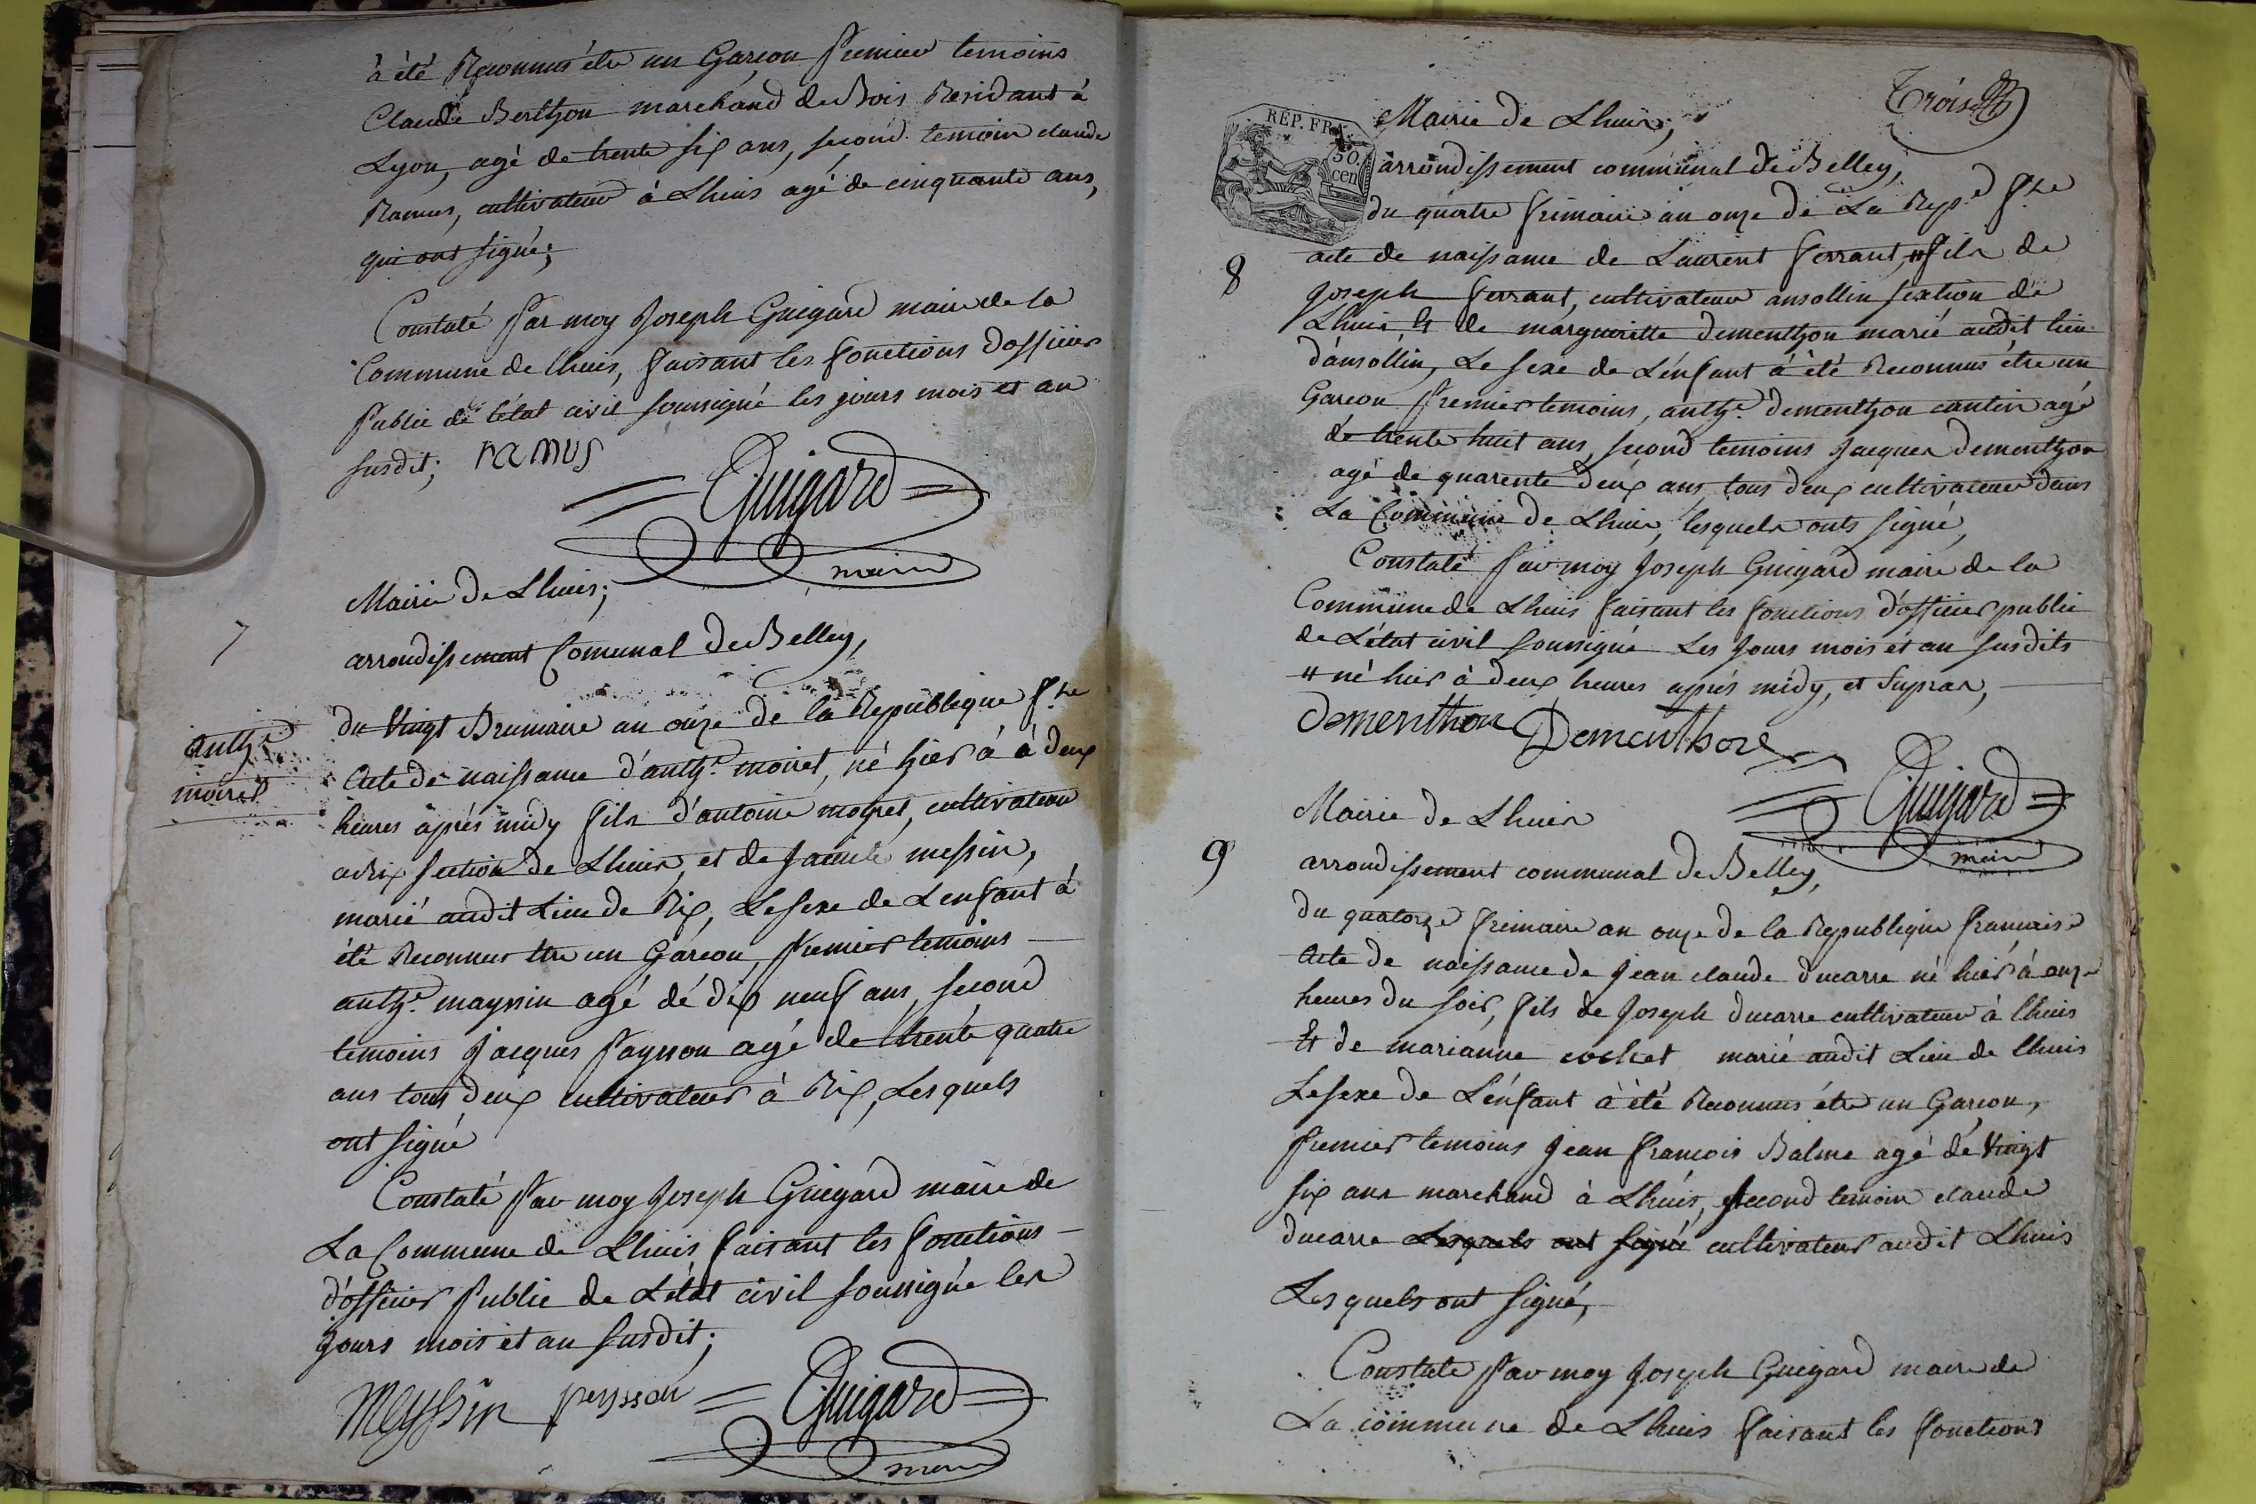 à été Reconnus étre un Garcon Premier temoins
Claude Berthon marchand de Bois Residant à
Lyon, agé de trente six ans, second temoin claude
Ramus, cultivateur à Lhuis agé de cinquante ans,
qui ont signé;
Constaté Par moy Joseph Guigard maire de la
Commune de lhuis, faisant les fonctions d'officier
Public de l'état civil soussigné les jours mois et an
susdit; ramus
Guigard
maire
Mairie de Lhuis;
7
arrondissement Comunal de Belley,
du Vingt Brumaire an onze de la Republique f.se
anth.e
moiret
Acte de naissance d'anth.e moiret, né hier à à deux
heures aprés midy fils d'antoine moyret, cultivateur
a Rix section de Lhuis, et de Jacqueline messin,
marié audit Lieu de Rix, Le sexe de L'enfant à
été Reconnus être un Garcon, Premier temoins
anth.e mayssin agé dé dix neuf ans, second
temoins Jacques Paysson agé de trente quatre
ans tous deux cultivateur à Rix, Les quels
ont signé
Constaté Par moy Joseph Guigard maire de
La Commune de Lhuis faisant les fonctions
d'officier Public de L'état civil soussigné les
jours mois et an susdit;
Meyssin peysson Guigard
maire
Trois
REP. FRA.
50.
cen
Mairie de Lhuis;
arrondissement communal de Belley,
du quatre frimaire an onze de La Rep.e f.se
8
acte de naissance de Laurent ferrant, # fils de
Joseph ferrant, cultivateur ansollin sextion de
Lhuis Et de margueritte dementhon marié audit lieu
d'ansollin, Le sexe de L'énfant à été Reconnus étre un
Garcon Premier temoins, anth.e dementhon cantin agé
de trente huit ans, second temoins Jacques dementhon
agé de quarente deux ans, tous deux cultivateur dans
La Commune de Lhuis, lesquels onts signé,
Constaté Par moy Joseph Guigard maire de la
Commune de Lhuis faisant les fonctions d'officier public
de L'état civil soussigné Les Jours mois ét an susdits
# né hier à deux heures aprés midy, et supras,
dementhon Dementhon
Guigard
maire
Mairie de Lhuis
9
arrondissement communal de Belley,
du quatorze frimaire an onze de la Republique francaise
Acte de naissance de Jean claude ducarre né hier à onze
heures du soir, fils de Joseph ducarre cultivateur à lhuis
Et de marianne cochet marié audit Lieu de lhuis
Le sexe de L'énfant à été Reconnus étre un Garcon,
Premier temoins Jean francois Balme agé dé Vingt
six ans marchand à Lhuis, second temoin claude
ducarre Lesquels ont signé cultivateur audit Lhuis
Les quels ont signé,
Constaté Par moy Joseph Guigard maire de
La commune de Lhuis faisant les fonctions